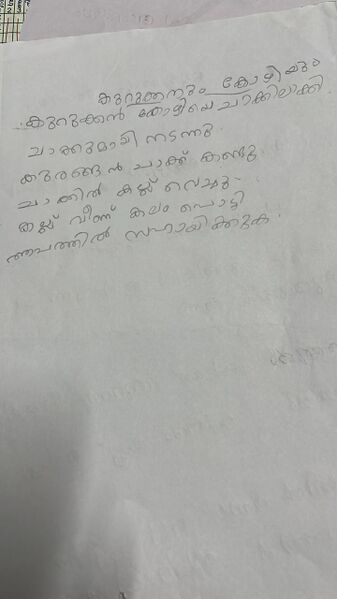 കുറുക്കനും കോഴിയും
കുറുക്കൻ കോഴിയെ ചാക്കിലാക്കി.
ചാക്കുമായി നടന്നു.
കുരങ്ങൻ ചാക്ക് കണ്ടു.
ചാക്കിൽ കല്ല് വെച്ചു.
കല്ല് വീണ് കലം പൊട്ടി
ആപത്തിൽ സഹായിക്കുക.